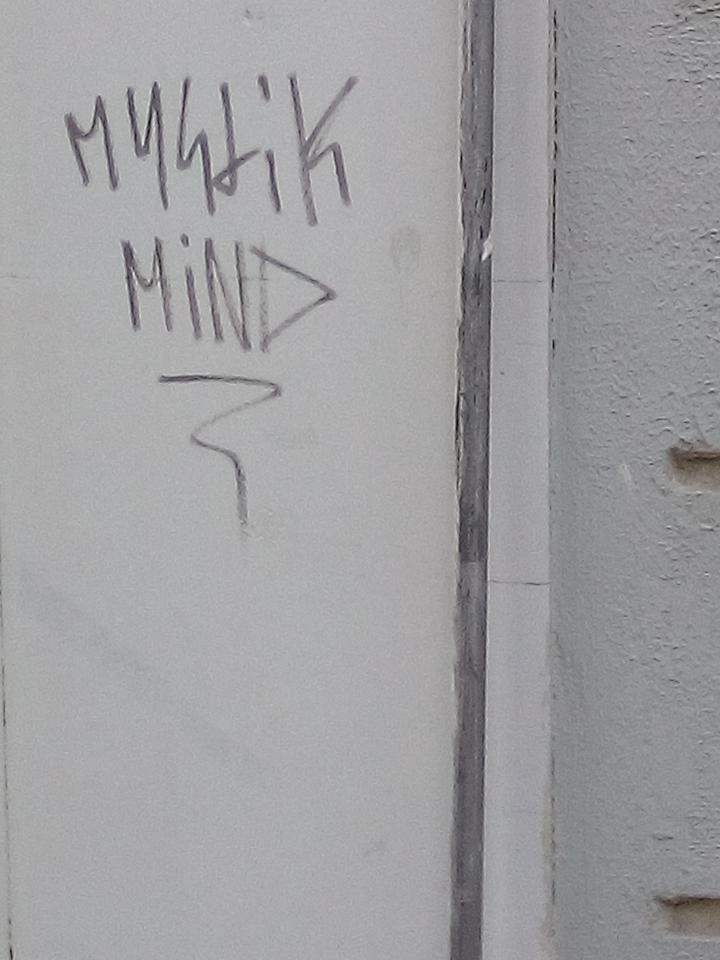 MYStiK
MiND